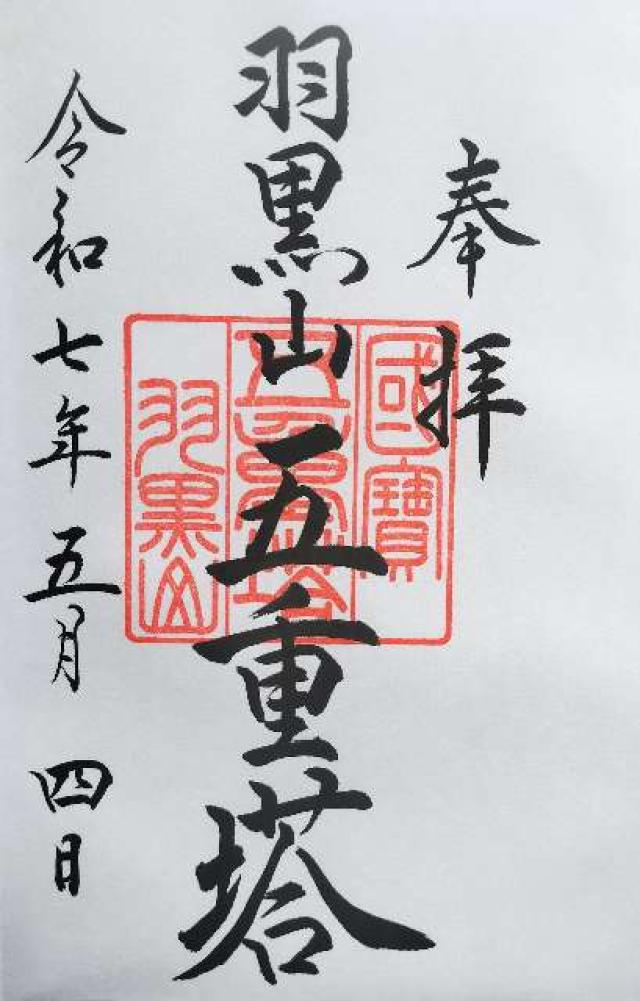 奉拝
羽黒山五重塔
令和七年五月四日
國寶
五重塔
羽黒山